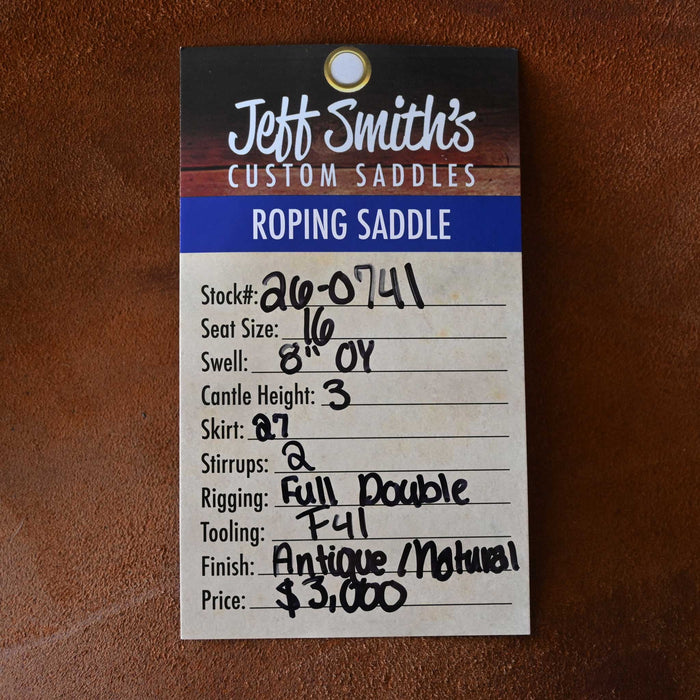 Jeff Smith's
CUSTOM SADDLES
ROPING SADDLE
Stock#: 26-0741
Seat Size: 16
Swell: 8" OY
Cantle Height: 3
Skirt: 27
Stirrups: 2
Rigging: Full Double
Tooling: F41
Finish: Antique/Natural
Price: $3,000